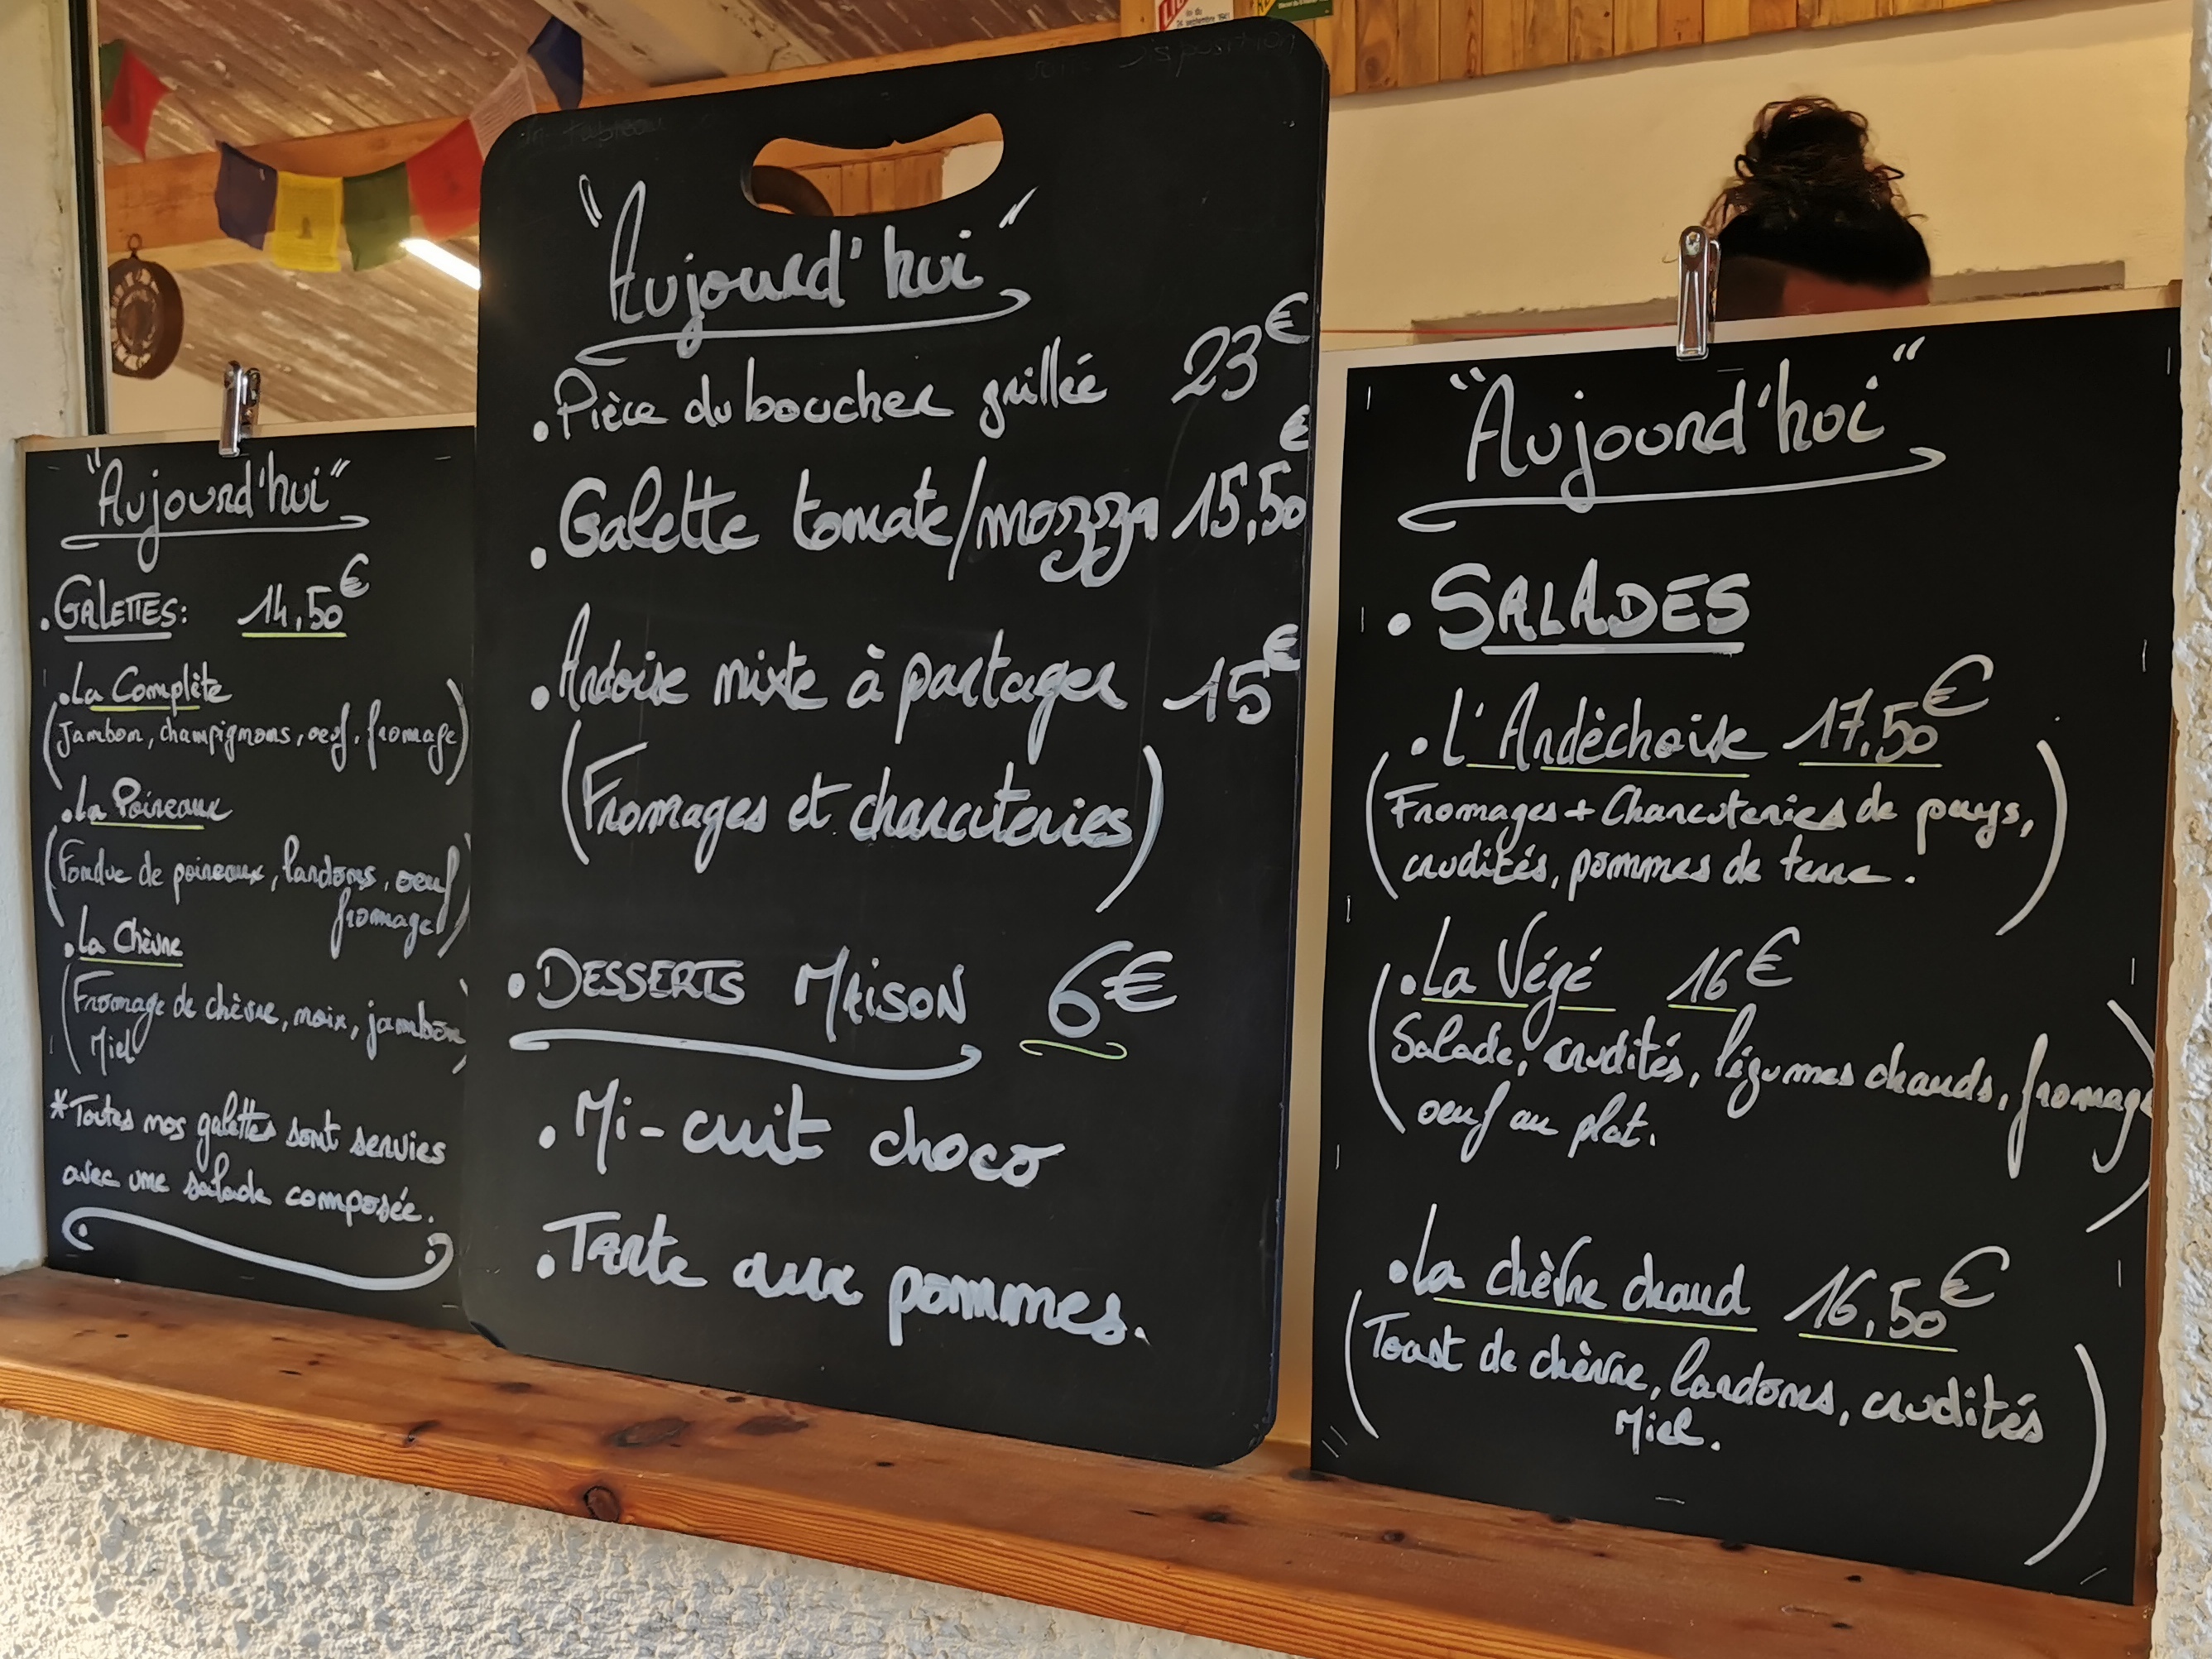 "Aujourd'hui"
• GALETTES: 14,50€
• La Complète
(Jambon, champignons, oeuf, fromage)
• La Poireaux
(Fondue de poireaux, lardons, oeuf
fromage)
• La Chèvre
(Fromage de chèvre, noix, jambon
Miel)
* Toutes nos galettes sont servies
avec une salade composée.
"Aujourd'hui"
• Pièce du boucher grillée 23€
• Galette tomate/mozza 15,50€
• Ardoise mixte à partager 15€
(Fromages et charcuteries)
• DESSERTS MAISON 6€
• Mi-cuit choco
• Tarte aux pommes.
"Aujourd'hui"
• SALADES
• L'Ardèchoise 17,50€
(Fromages + Charcuteries de pays,
crudités, pommes de terre.)
• La Végé 16€
(Salade, crudités, légumes chauds, fromage
oeuf au plat.)
• La chèvre chaud 16,50€
(Toast de chèvre, lardons, crudités
Miel.)